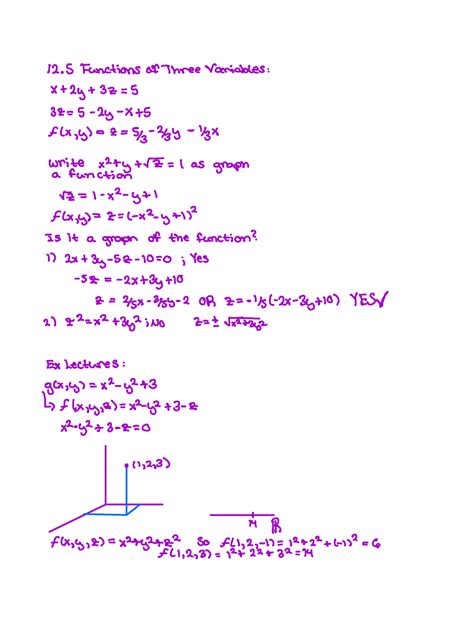 12.5 Functions of Three Variables:
x + 2y + 3z = 5
3z = 5 - 2y - x + 5
f(x,y) = z = 5/3 - 2/3y - 1/3x
write x² + y + √z = 1 as graph
a function
√z = 1 - x² - y + 1
f(x,y) = z = (-x² - y + 1)²
Is it a graph of the function?
1) 2x + 3y - 5z - 10 = 0 ; Yes
-5z = -2x + 3y + 10
z = 2/5x - 3/5y - 2 OR z = -1/5(-2x - 3y + 10) YES✓
2) z² = x² + 3y² ; NO z = ± √x² + 3y²
Ex Lectures:
g(x,y) = x² - y² + 3
↳ f(x,y,z) = x² - y² + 3 - z
x² - y² + 3 - z = 0
(1,2,3)
14 ℝ
f(x,y,z) = x² + y² + z² So f(1,2,-1) = 1² + 2² + (-1)² = 6
f(1,2,3) = 1² + 2² + 3² = 14